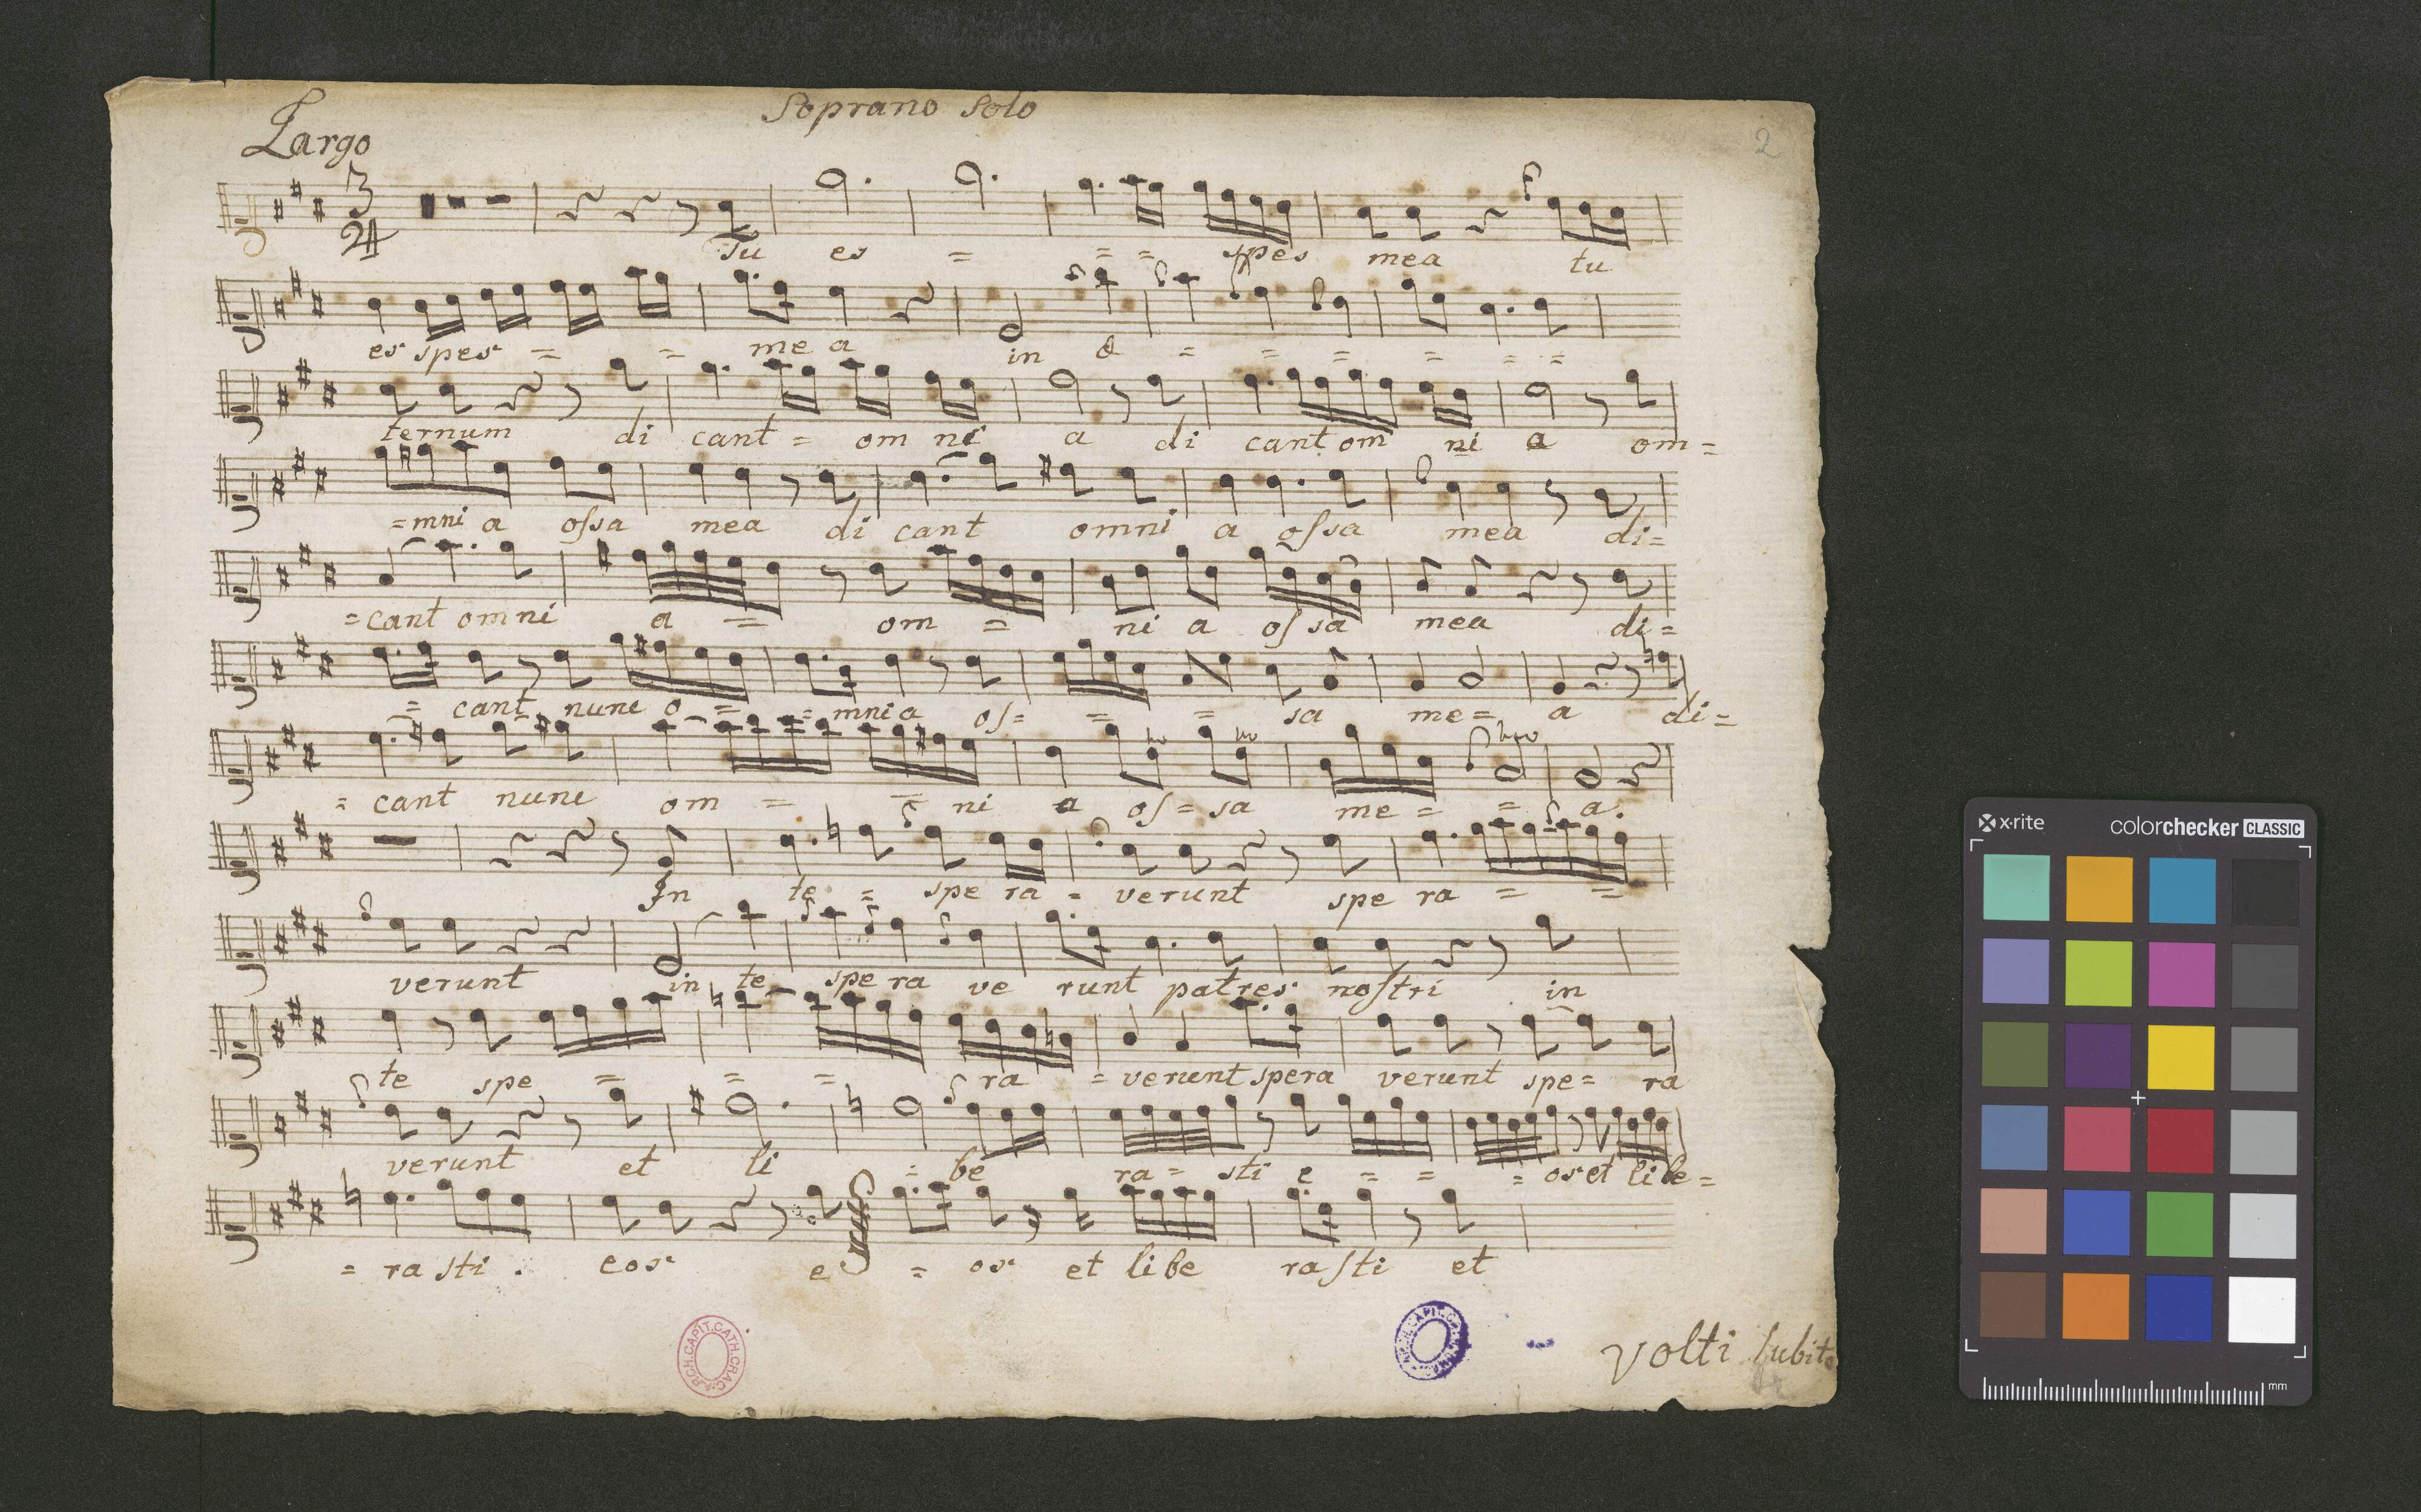 Soprano Solo
2
Largo
3
4
Tu es = = = spes mea tu
es spes = = me a in æ = = = = = =
ternum di cant = om ni a di cant om ni a om=
=mni a ossa mea di cant omni a ossa mea di=
=cant omni a = om = ni a ossa mea di=
= cant nunc o = = mni a os= = = sa me= a di=
= cant nunc om = = ni a os = sa me = = a.
In te = spe ra = verunt spe ra = =
verunt in te spe ra ve runt patres nostri in
te spe = = = ra = verunt spera verunt spe= ra
verunt et li = be ra = sti e = = = os et libe=
= ra sti . eos e = os et libe rasti et
volti subito
ARCH.CAPIT.CATH.CRAC.
x·rite
colorchecker CLASSIC
mm